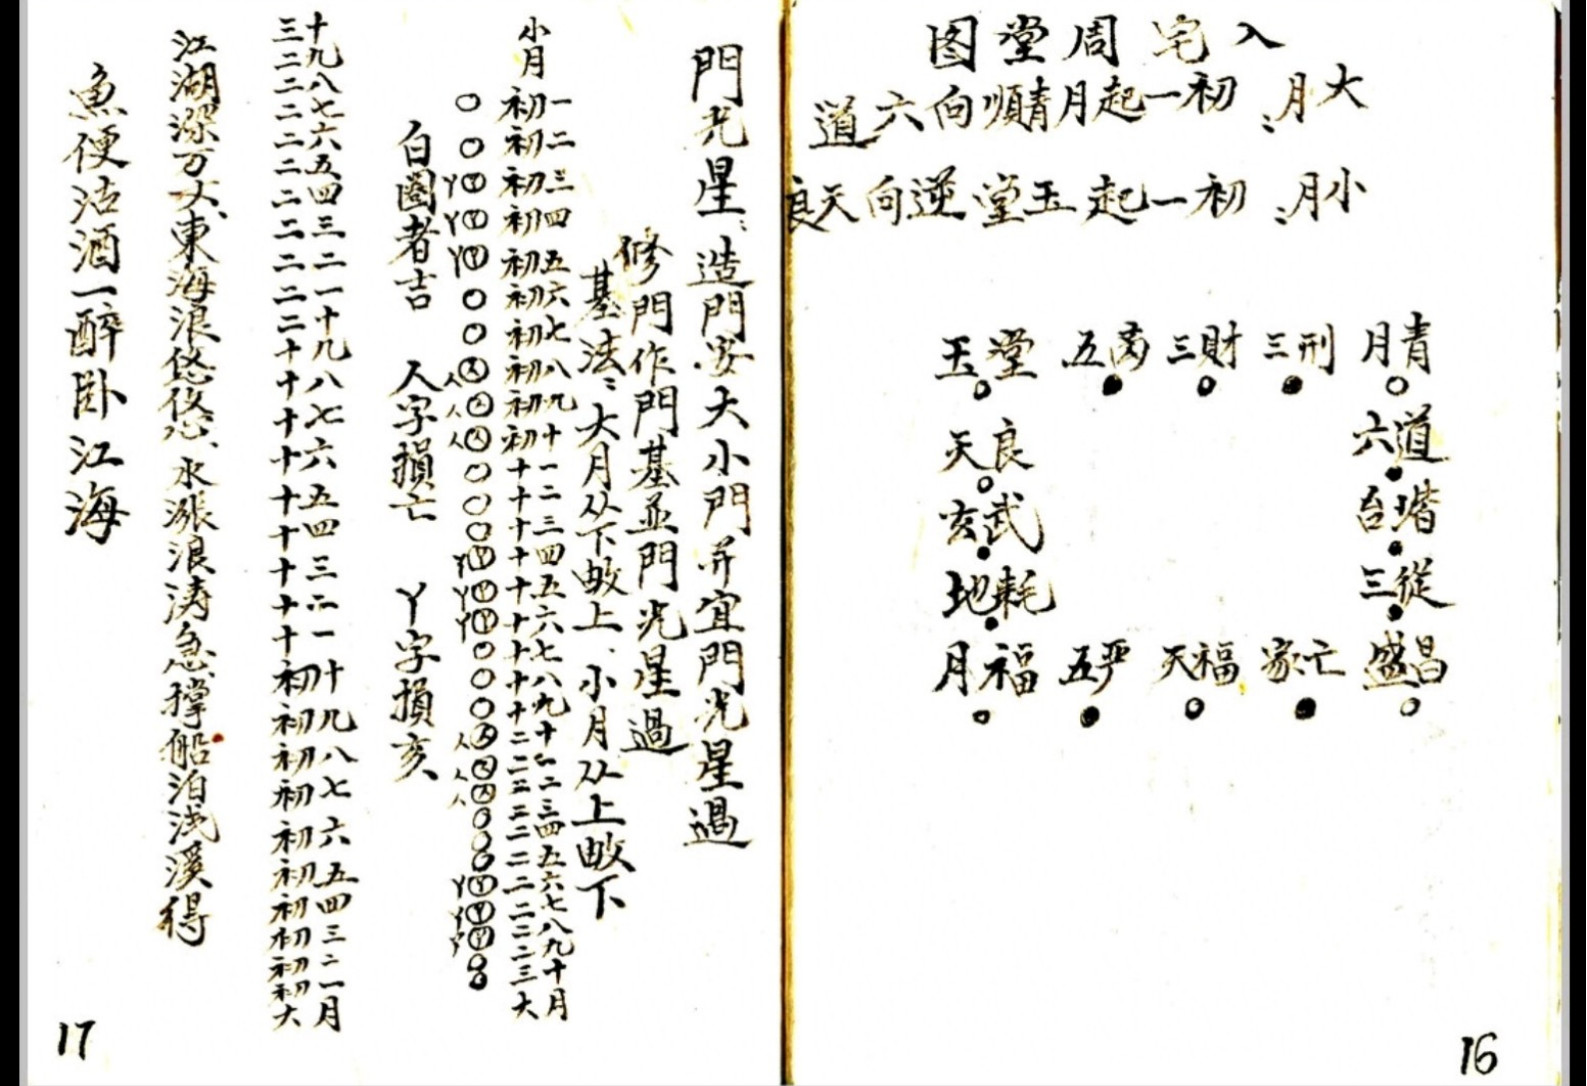 入宅周堂图
大月：初一起月青順向六道
小月：初一起玉堂逆向天良
月青 三刑 三財 五离 玉堂
六道 天良
台堦 玄武
三從 地耗
盛昌 家亡 天福 五严 月福
16
門光星：造門安大小門并宜門光星過
修門作門基並門光星過
基法：大月从下 上、小月从上 下
小月
初一 初二 初三 初四 初五 初六 初七 初八 初九 初十 十一 十二 十三 十四 十五 十六 十七 十八 十九 二十 二一 二二 二三 二四 二五 二六 二七 二八 二九 三十 大月
○ ○ 丫 丫 丫 ○ ○ 人 人 人 ○ ○ ○ 丫 丫 丫 ○ ○ ○ 人 人 人 ○ ○ ○ 丫 丫 丫 ○ ○
白圈者吉 人字損亡 丫字損亥
三十 二九 二八 二七 二六 二五 二四 二三 二二 二一 二十 十九 十八 十七 十六 十五 十四 十三 十二 十一 初十 初九 初八 初七 初六 初五 初四 初三 初二 初一 大月
江湖深万丈、東海浪悠悠、水漲浪涛急、撑船泊浅溪得
魚便沽酒一醉卧江海
17